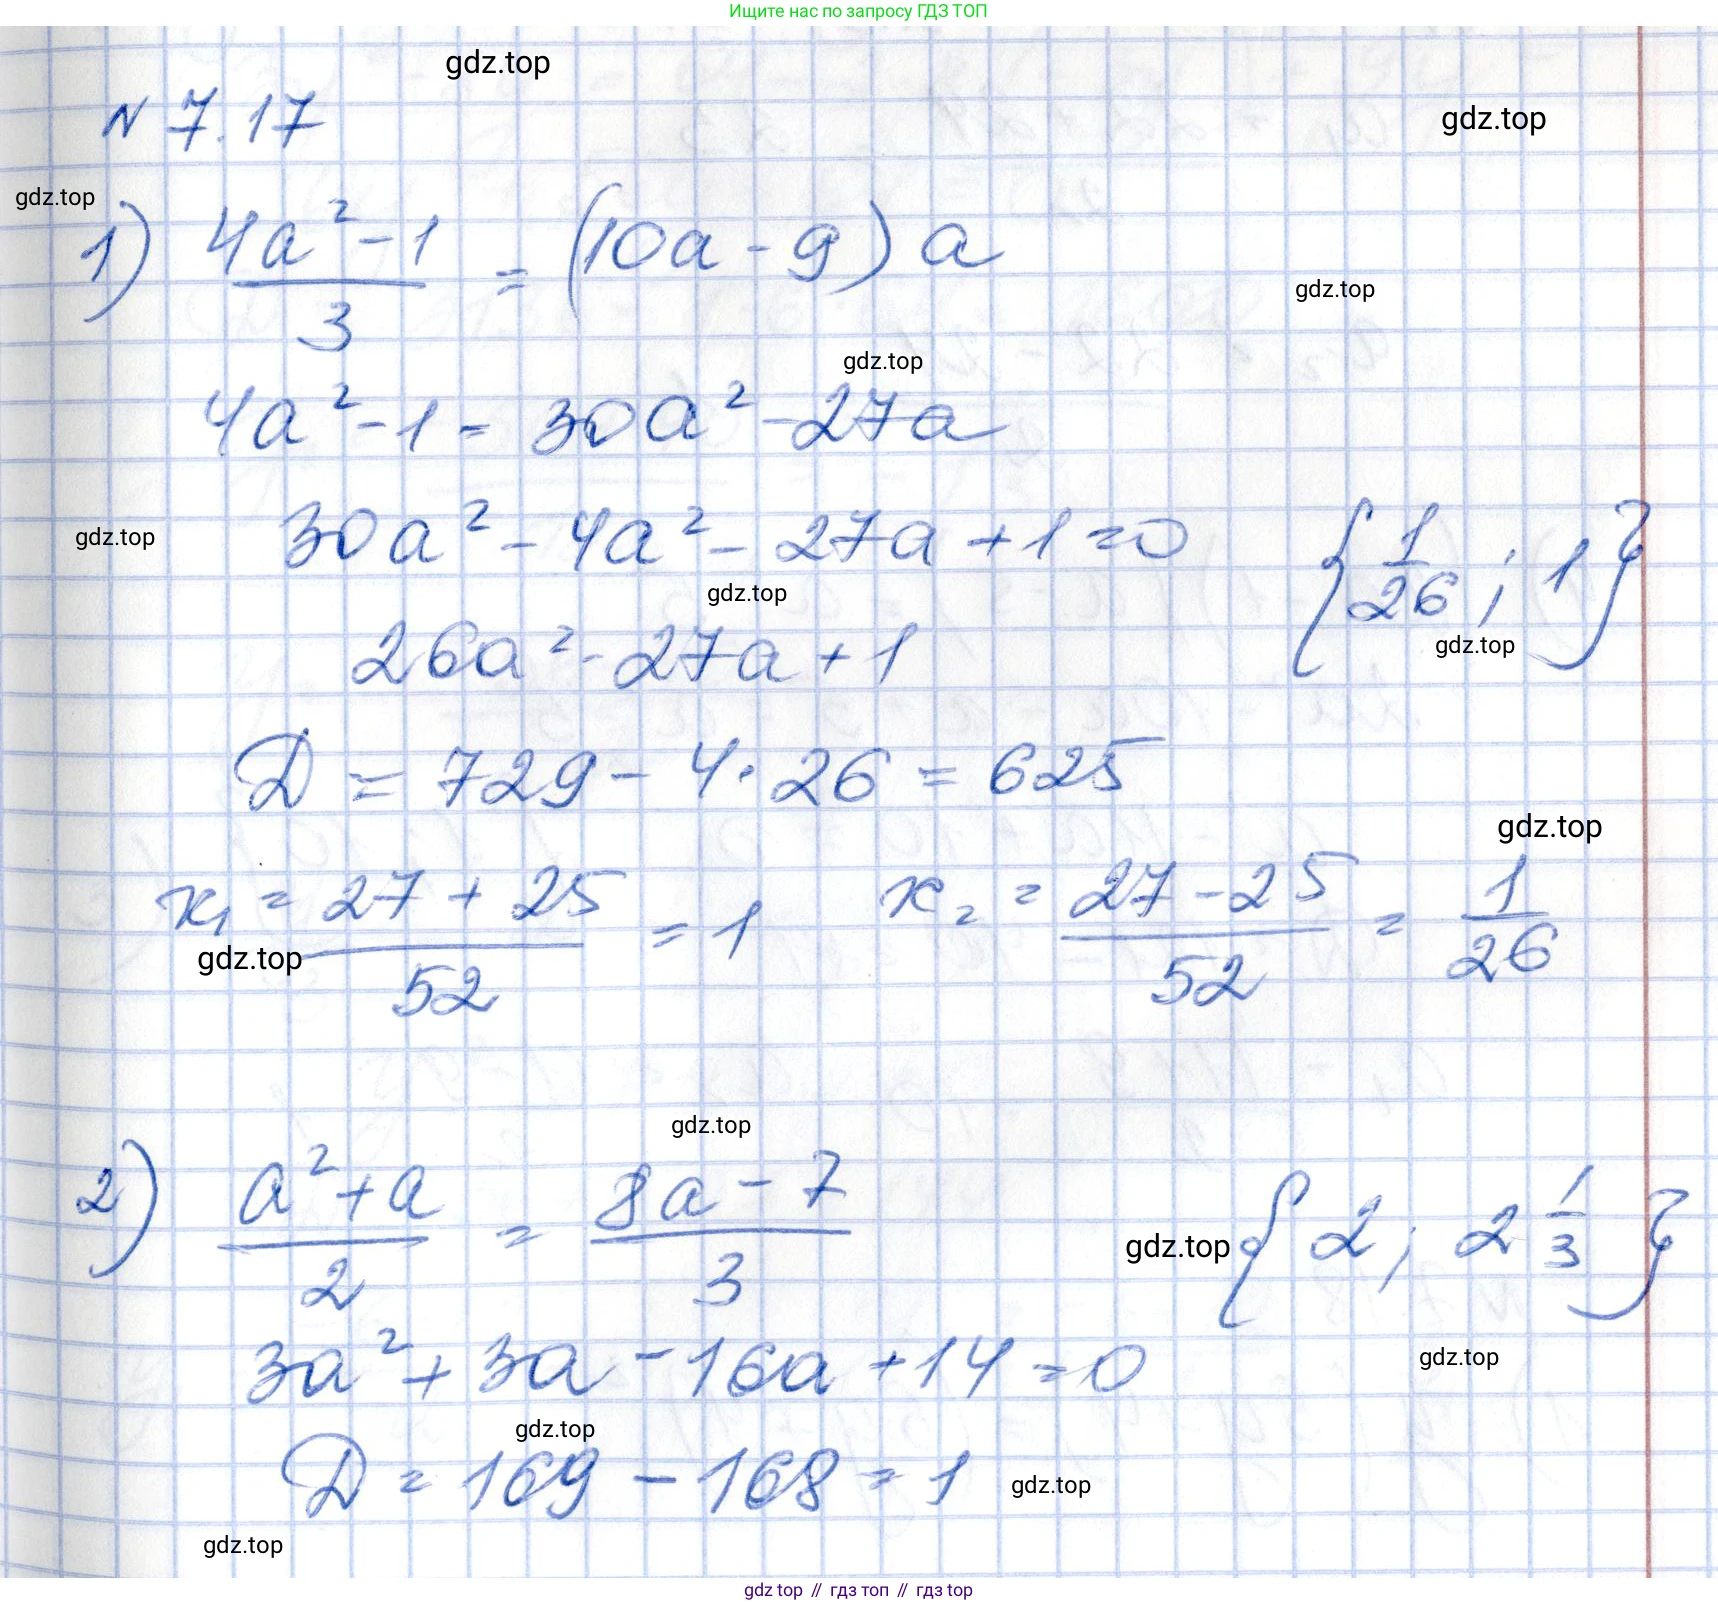 Ищите нас по запросу ГДЗ ТОП
gdz.top
N 7.17
gdz.top
gdz.top
1) (4a² - 1)/3 = (10a - 9) a
gdz.top
gdz.top
4a² - 1 = 30a² - 27a
30a² - 4a² - 27a + 1 = 0 {1/26 ; 1}
gdz.top
gdz.top
gdz.top
26a² - 27a + 1
D = 729 - 4 · 26 = 625
gdz.top
x₁ = (27 + 25)/52 = 1 x₂ = (27 - 25)/52 = 1/26
gdz.top
gdz.top
2) (a² + a)/2 = (8a - 7)/3 {2 ; 2 1/3}
gdz.top
gdz.top
3a² + 3a - 16a + 14 = 0
gdz.top
D = 169 - 168 = 1
gdz.top
gdz.top
gdz top // гдз топ // gdz top